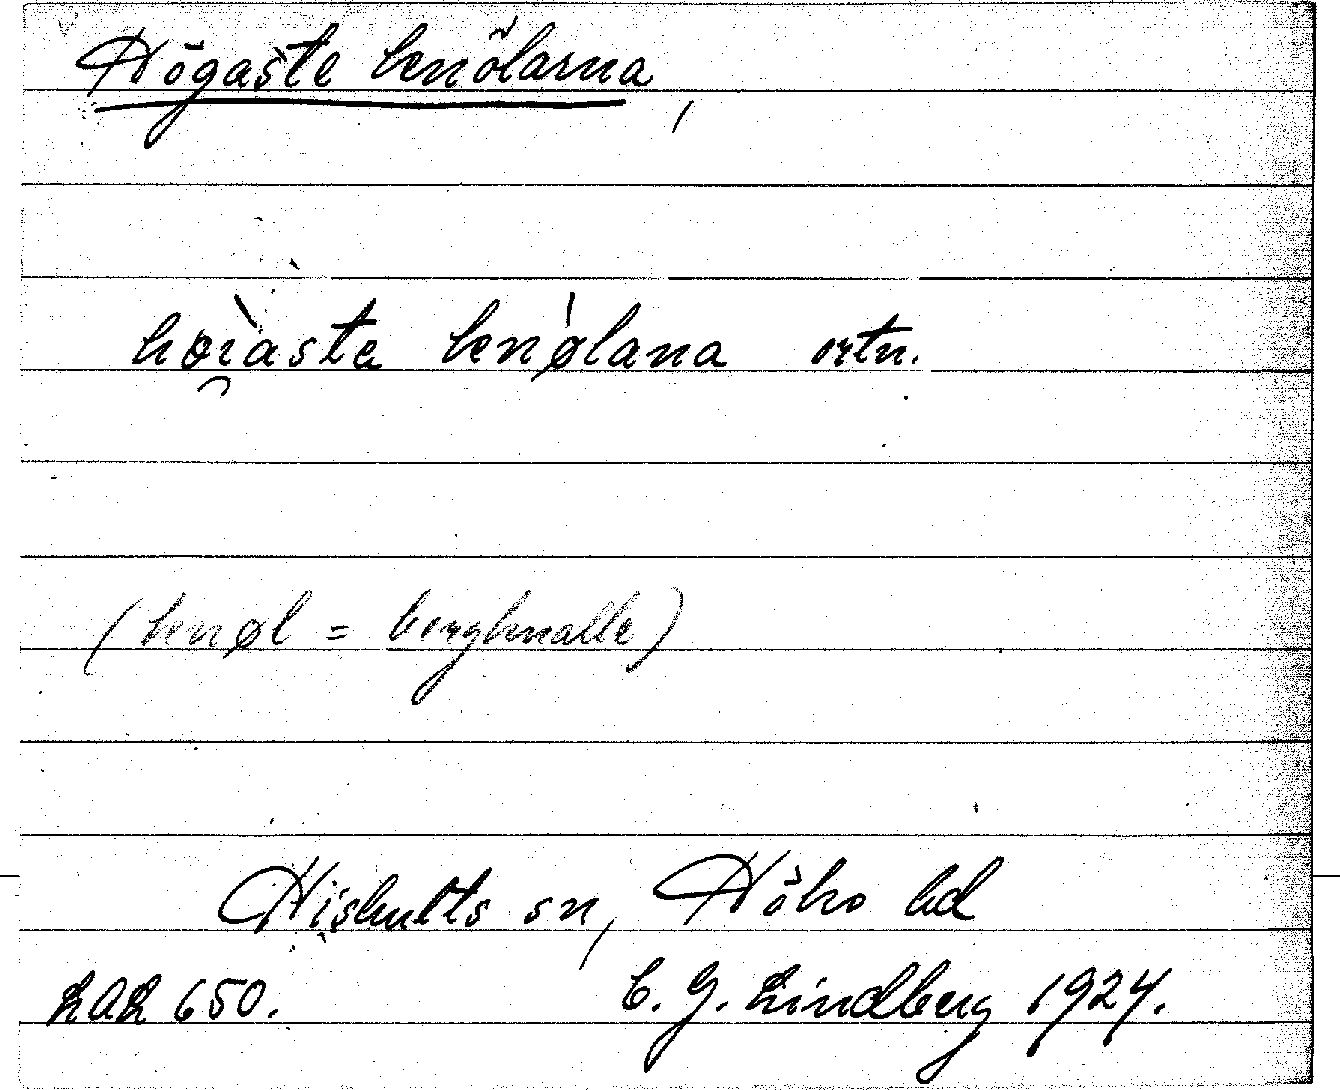 Högaste knölarna,
høiaste knølana ortn.
(knøl = bergknalle)
Hishults sn, Höks hd
LAL 650. C. G. Lindberg 1924.